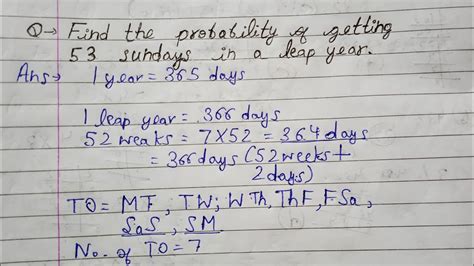 Q→ Find the probability of getting
53 sundays in a leap year.
Ans→ 1 year = 365 days
1 leap year = 366 days
52 weaks = 7×52 = 364 days
= 366 days (52 weeks +
2 days)
TO = MF, TW; WTh, ThF, FSa,
SaS, SM
No. of TO = 7